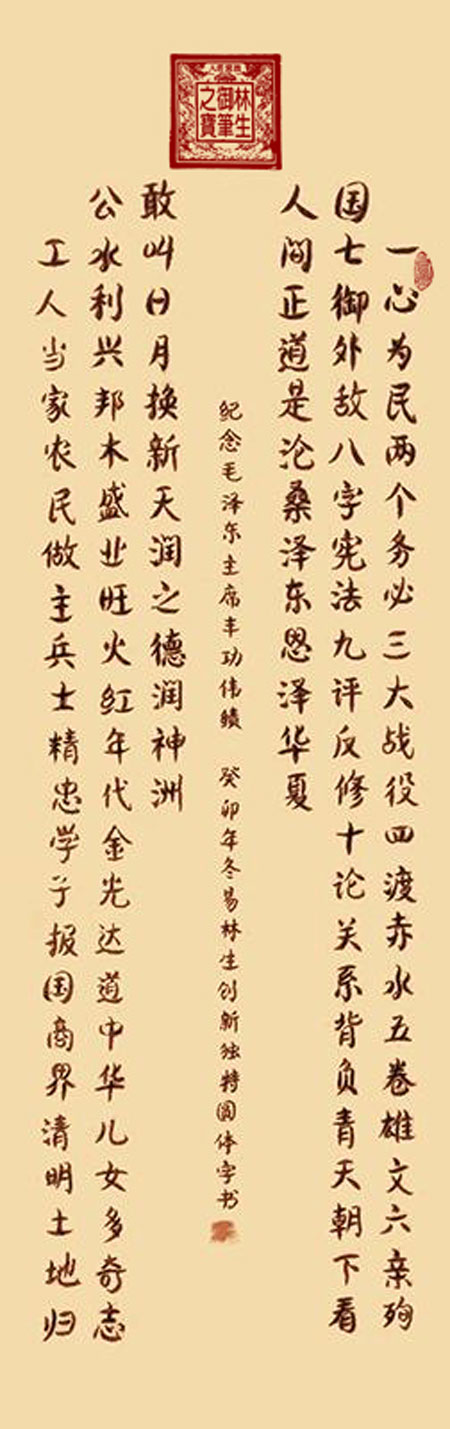 林生
御筆
之寶
一心为民两个务必三大战役四渡赤水五卷雄文六亲殉
国七御外敌八字宪法九评反修十论关系背负青天朝下看
人间正道是沧桑泽东恩泽华夏
工人当家农民做主兵士精忠学子报国商界清明土地归
公水利兴邦木盛业旺火红年代金光达道中华儿女多奇志
敢叫日月换新天润之德润神洲
纪念毛泽东主席丰功伟绩 癸卯年冬易林生创新独特圆体字书